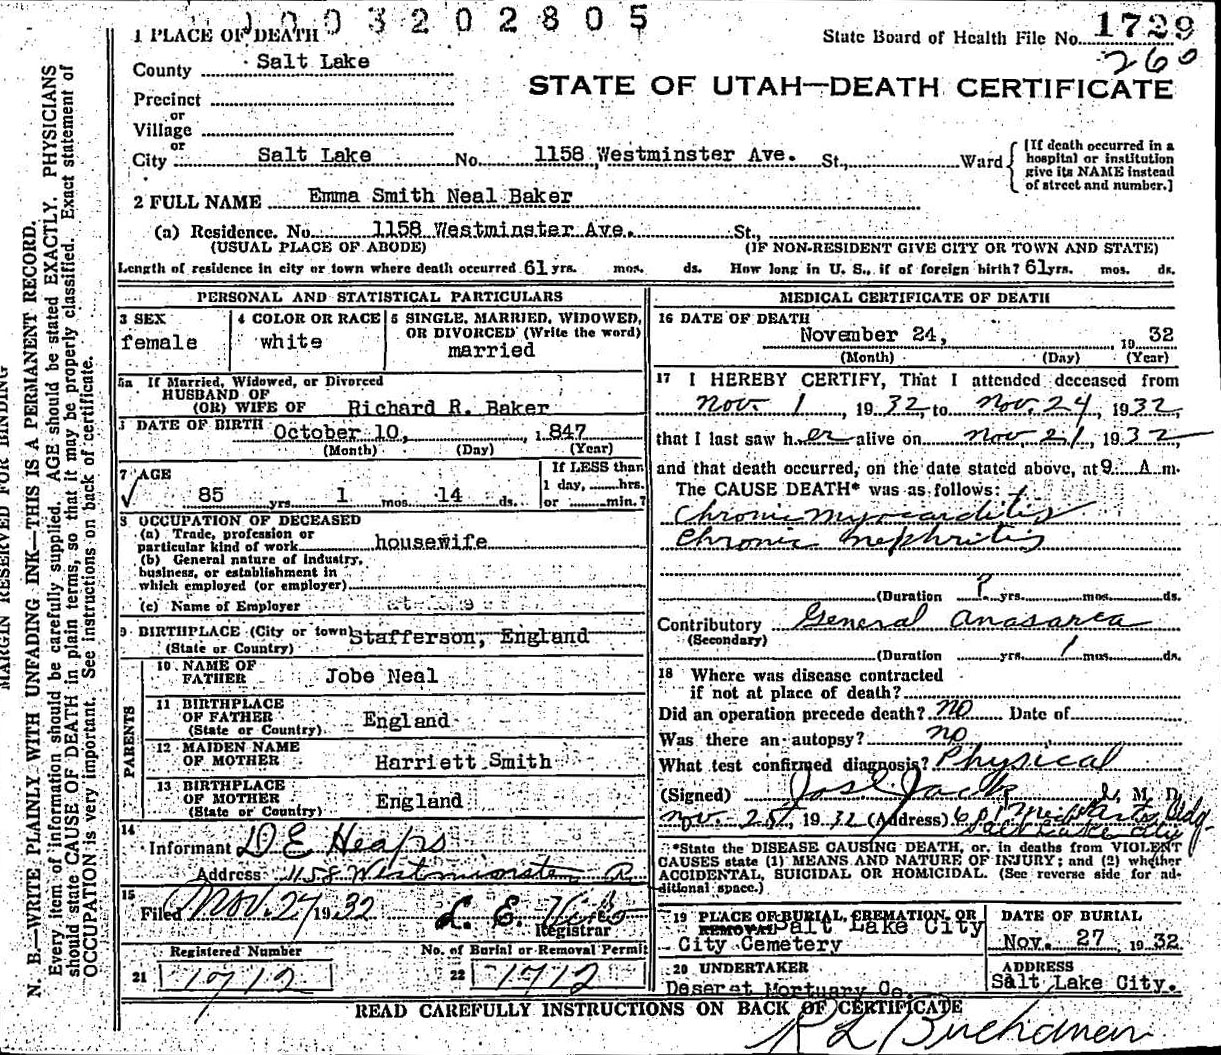 1003202805
1 PLACE OF DEATH
State Board of Health File No. 1729
260
County Salt Lake
STATE OF UTAH—DEATH CERTIFICATE
Precinct
or
Village
or
City Salt Lake No. 1158 Westminster Ave. St., Ward
[If death occurred in a
hospital or institution
give its NAME instead
of street and number.]
2 FULL NAME Emma Smith Neal Baker
(a) Residence. No. 1158 Westminster Ave. St.,
(USUAL PLACE OF ABODE) (IF NON-RESIDENT GIVE CITY OR TOWN AND STATE)
Length of residence in city or town where death occurred 61 yrs. mos. ds. How long in U. S., if of foreign birth? 61 yrs. mos. ds.
PERSONAL AND STATISTICAL PARTICULARS
3 SEX
female
4 COLOR OR RACE
white
5 SINGLE, MARRIED, WIDOWED,
OR DIVORCED (Write the word)
married
5a If Married, Widowed, or Divorced
HUSBAND OF
(OR) WIFE OF Richard R. Baker
DATE OF BIRTH October 10, 1847
(Month) (Day) (Year)
7 AGE
85 yrs 1 mos 14 ds.
If LESS than
1 day, hrs.
or min.?
8 OCCUPATION OF DECEASED
(a) Trade, profession or
particular kind of work housewife
(b) General nature of industry,
business, or establishment in
which employed (or employer)
(c) Name of Employer
9 BIRTHPLACE (City or town) Stafferson, England
(State or Country)
PARENTS
10 NAME OF
FATHER Jobe Neal
11 BIRTHPLACE
OF FATHER England
(State or Country)
12 MAIDEN NAME
OF MOTHER Harriett Smith
13 BIRTHPLACE
OF MOTHER England
(State or Country)
14
Informant D E Heaps
Address 1158 Westminster
15
Filed Nov. 27 1932 L. E.
Registrar
Registered Number
21 1712
No. of Burial or Removal Permit
22 1712
MEDICAL CERTIFICATE OF DEATH
16 DATE OF DEATH
November 24, 1932
(Month) (Day) (Year)
17 I HEREBY CERTIFY, That I attended deceased from
Nov. 1, 1932, to Nov. 24, 1932,
that I last saw her alive on Nov 21, 1932,
and that death occurred, on the date stated above, at 9 A m.
The CAUSE DEATH* was as follows:
Chronic Myocarditis
Chronic nephritis
(Duration ? yrs. mos. ds.
Contributory General anasarca
(Secondary)
(Duration yrs. 1 mos. ds.
18 Where was disease contracted
if not at place of death?
Did an operation precede death? no Date of
Was there an autopsy? no
What test confirmed diagnosis? Physical
(Signed) M. D.
Nov 25, 1932 (Address) Bldg
Salt Lake City
*State the DISEASE CAUSING DEATH, or, in deaths from VIOLENT
CAUSES state (1) MEANS AND NATURE OF INJURY; and (2) whether
ACCIDENTAL, SUICIDAL OR HOMICIDAL. (See reverse side for ad-
ditional space.)
19 PLACE OF BURIAL, CREMATION, OR
REMOVAL Salt Lake City
City Cemetery
DATE OF BURIAL
Nov. 27 1932
20 UNDERTAKER
Deseret Mortuary Co.
ADDRESS
Salt Lake City.
READ CAREFULLY INSTRUCTIONS ON BACK OF CERTIFICATE
R L Buchanan
MARGIN RESERVED FOR BINDING
N. B.—WRITE PLAINLY WITH UNFADING INK—THIS IS A PERMANENT RECORD.
Every item of information should be carefully supplied. AGE should be stated EXACTLY. PHYSICIANS
should state CAUSE OF DEATH in plain terms, so that it may be properly classified. Exact statement of
OCCUPATION is very important. See instructions on back of certificate.